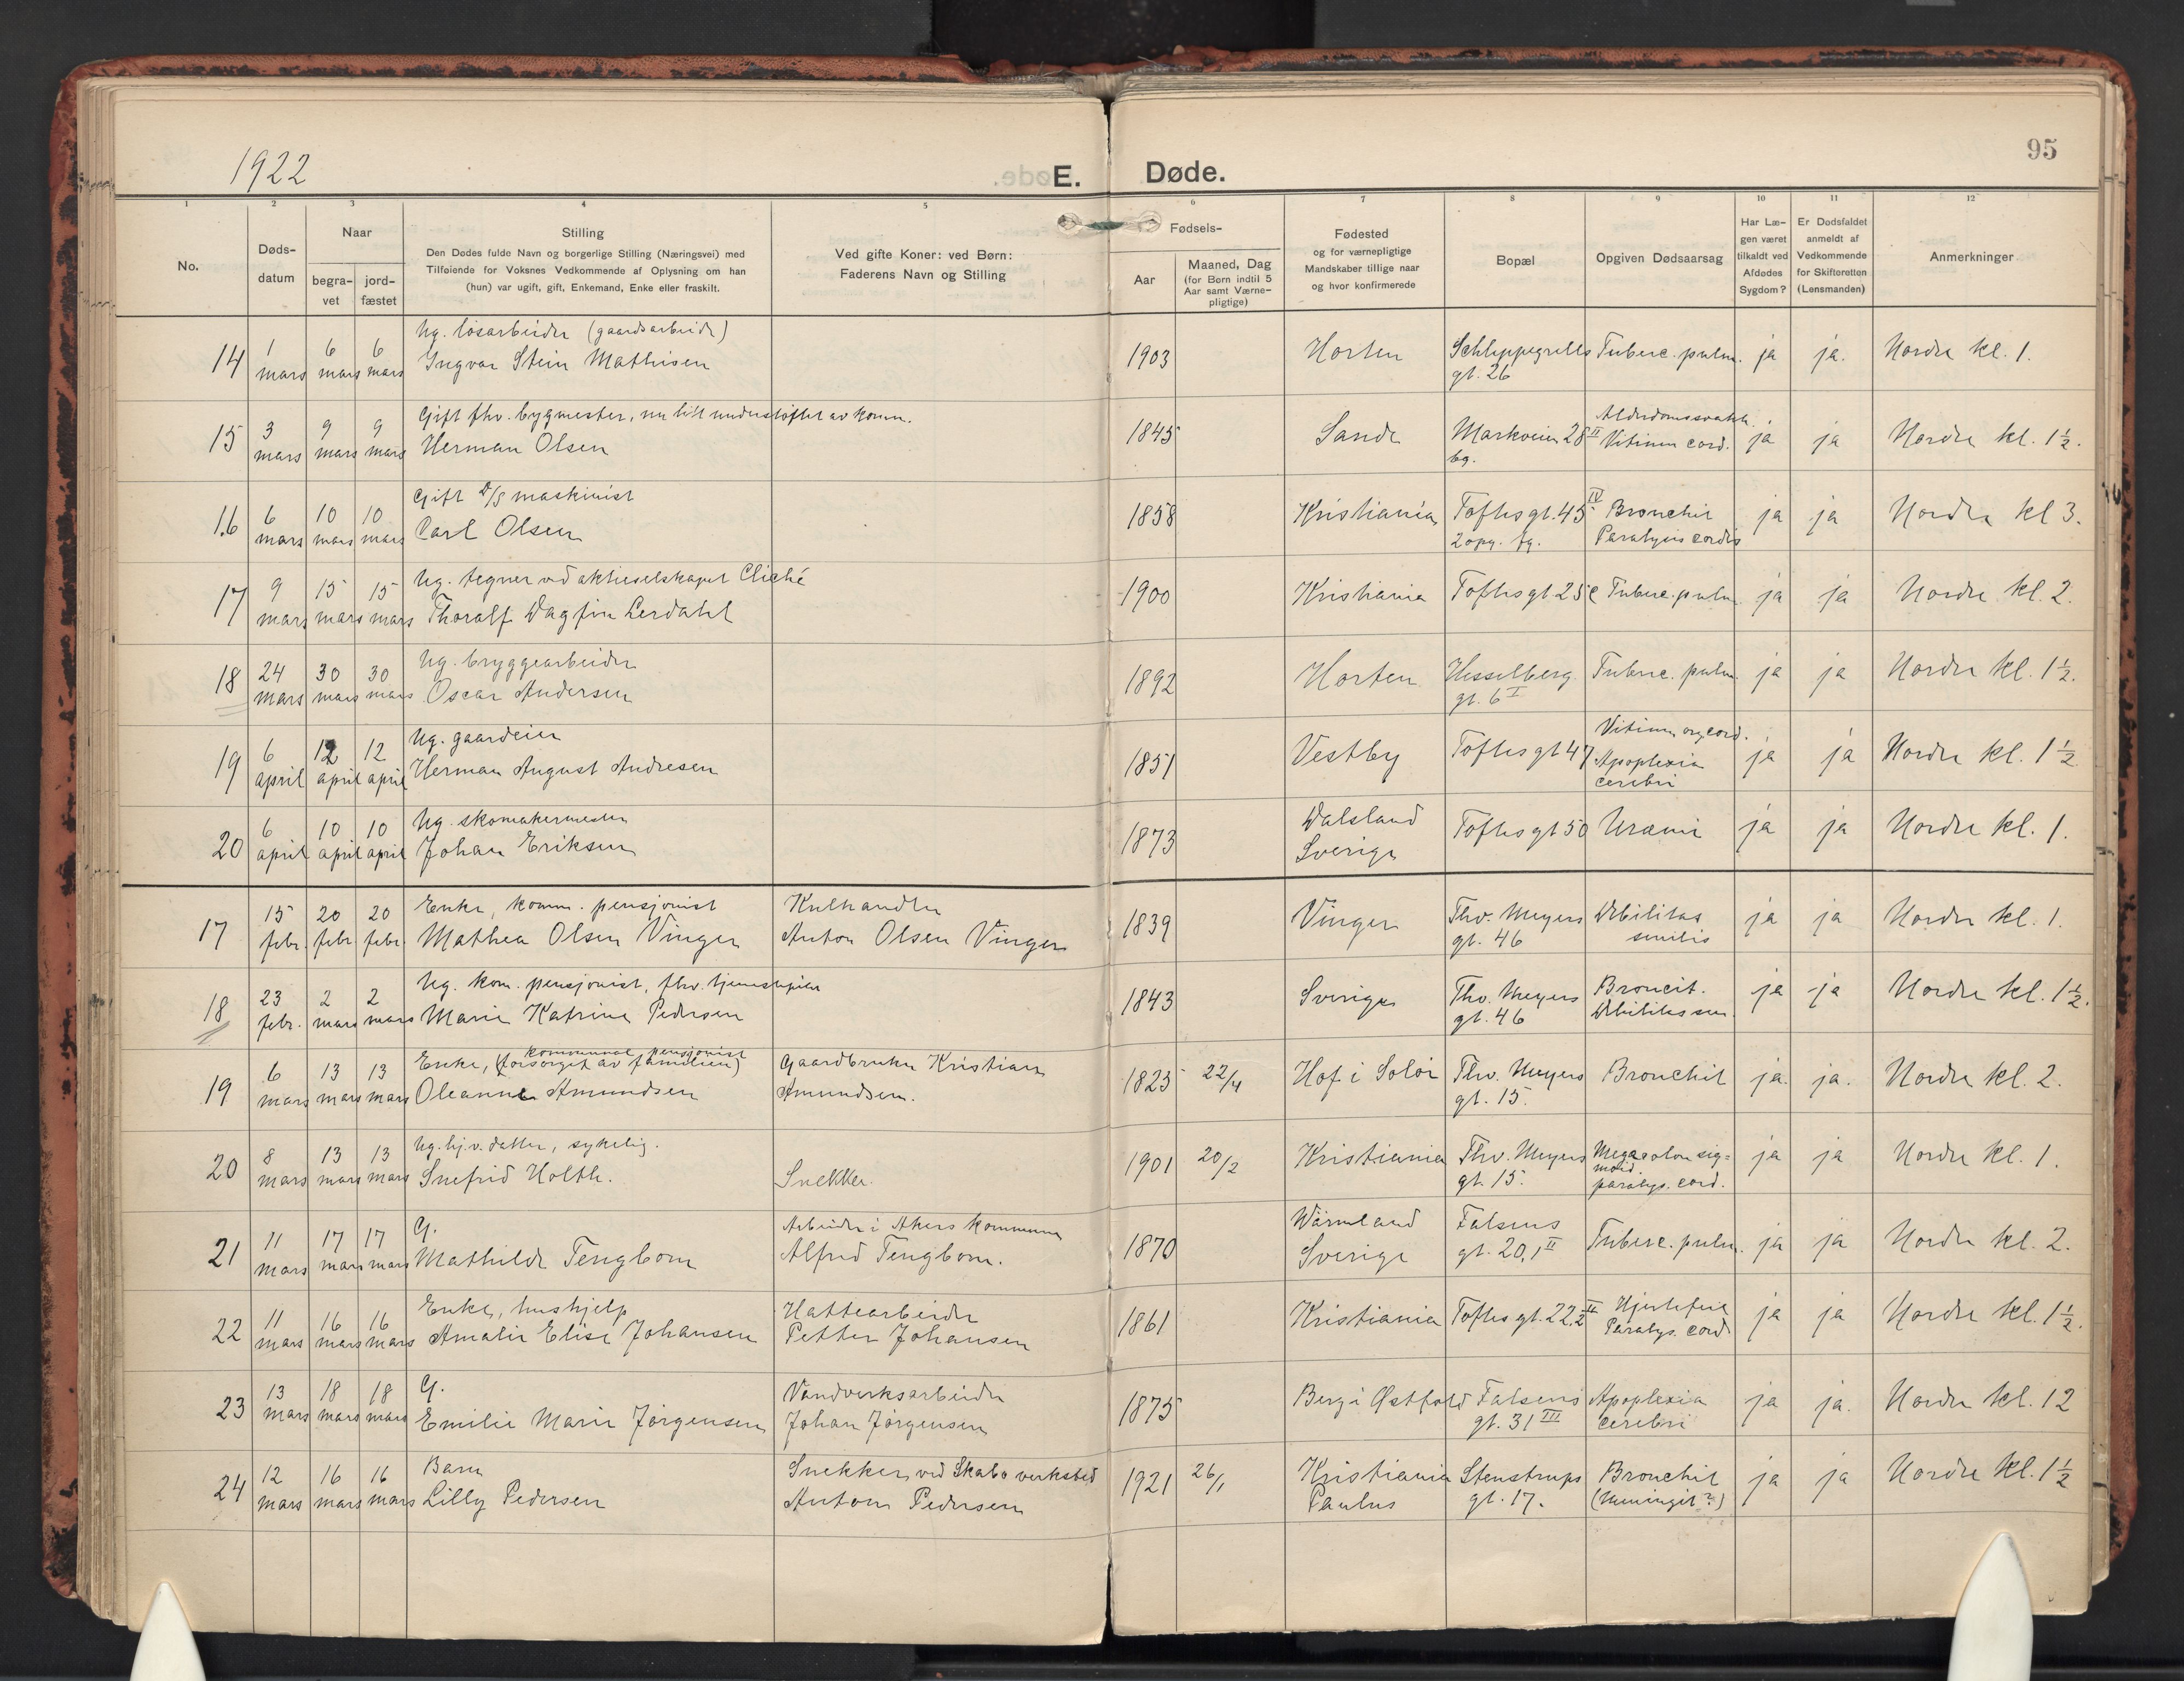 1922
E. Døde.
95
1 2 3 4 5 6 7 8 9 10 11 12
No.
Døds-
datum
Naar
begra-
vet
jord-
fæstet
Stilling
Den Dødes fulde Navn og borgerlige Stilling (Næringsvei) med
Tilføiende for Voksnes Vedkommende af Oplysning om han
(hun) var ugift, gift, Enkemand, Enke eller fraskilt.
Ved gifte Koner: ved Børn:
Faderens Navn og Stilling
Fødsels-
Aar
Maaned, Dag
(for Børn indtil 5
Aar samt Værne-
pligtige)
Fødested
og for værnepligtige
Mandskaber tillige naar
og hvor konfirmerede
Bopæl
Opgiven Dødsaarsag
Har Læ-
gen været
tilkaldt ved
Afdødes
Sygdom?
Er Dødsfaldet
anmeldt af
Vedkommende
for Skifteretten
(Lensmanden)
Anmerkninger
Ug. løsarbeider (gaardsarbeider)
14 1 mars 6 mars 6 mars Ingvar Stein Mathisen 1903 Horten Schleppegrells gt. 26 Tuberc. pulm. ja ja. Nordre kl. 1.
Gift fhv. bygmester, nu litt understøttet av komm.
15 3 mars 9 mars 9 mars Herman Olsen 1845 Sande Markveien 28 II bg. Alderdomssvakh. Vitium cord. ja ja Nordre kl. 1½.
Gift D/S maskinist
16 6 mars 10 mars 10 mars Carl Olsen 1858 Kristiania Toftesgt. 45 IV 2 opg. fg. Bronchit Paralysis cordis ja ja Nordre kl 3.
Ug. tegner ved aktieselskapet Cliché
17 9 mars 15 mars 15 mars Thoralf Dagfin Lerdahl 1900 Kristiania Toftesgt 25c Tuberc. pulm. ja ja Nordre kl. 2.
Ug. bryggearbeider
18 24 mars 30 mars 30 mars Oscar Andersen 1892 Horten Hesselberg gt. 6 I Tuberc. pulm. ja ja Nordre kl. 1½.
Ug. gaardeier
19 6 april 12 april 12 april Herman August Andresen 1851 Vestby Toftesgt 47 Vitium org. cord. Apoplexia cerebri ja ja Nordre kl. 1½
Ug. skomakermester
20 6 april 10 april 10 april Johan Eriksen 1873 Dalsland Sverige Toftesgt 50 Uræmi ja ja Nordre kl. 1.
Enke, komm. pensjonist Kulhandler
17 15 febr. 20 febr. 20 febr. Mathea Olsen Vinger Anton Olsen Vinger 1839 Vinger Thv. Meyers gt. 46 Debilitas senilis ja ja Nordre kl. 1.
Ug. kom. pensjonist, fhv. tjenestepike
18 23 febr. 2 mars 2 mars Marie Katrine Pedersen 1843 Sverige Thv. Meyers gt. 46 Broncit. Debilitas sen. ja ja Nordre kl. 1½.
kommunal pensjonist
Enke, (forsørget av familien) Gaardbruker Kristian
19 6 mars 13 mars 13 mars Oleanne Amundsen Amundsen. 1825 22/4 Hof i Solør Thv. Meyers gt. 15. Bronchit ja. ja. Nordre kl. 2.
Ug. hj.v. datter, sykelig.
20 8 mars 13 mars 13 mars Snefrid Holth. Snekker. 1901 20/2 Kristiania Thv. Meyers gt. 15. Megacolon sig= moid. paralys. cord. ja ja Nordre kl. 1.
G. Arbeider i Akers kommune
21 11 mars 17 mars 17 mars Mathilde Tengbom Alfred Tengbom. 1870 Wärmland Sverige Falsens gt. 20, 1 II Tuberc. pulm. ja ja Nordre kl. 2.
Enke, hushjelp Hattearbeider
22 11 mars 16 mars 16 mars Amalie Elise Johansen Petter Johansen 1861 Kristiania Toftesgt. 22, 2 II Hjertefeil Paralys. cord. ja ja Nordre kl. 1½.
G. Vandverksarbeider
23 13 mars 18 mars 18 mars Emilie Marie Jørgensen Johan Jørgensen 1875 Berg i Østfold Falsens gt. 31 III Apoplexia cerebri ja ja. Nordre kl. 12
Barn Snekker ved Skabo verksted
24 12 mars 16 mars 16 mars Lilly Pedersen Anton Pedersen 1921 26/1 Kristiania Paulus Stenstrups gt. 17. Bronchit (Meningit?) ja ja Nordre kl. 1½